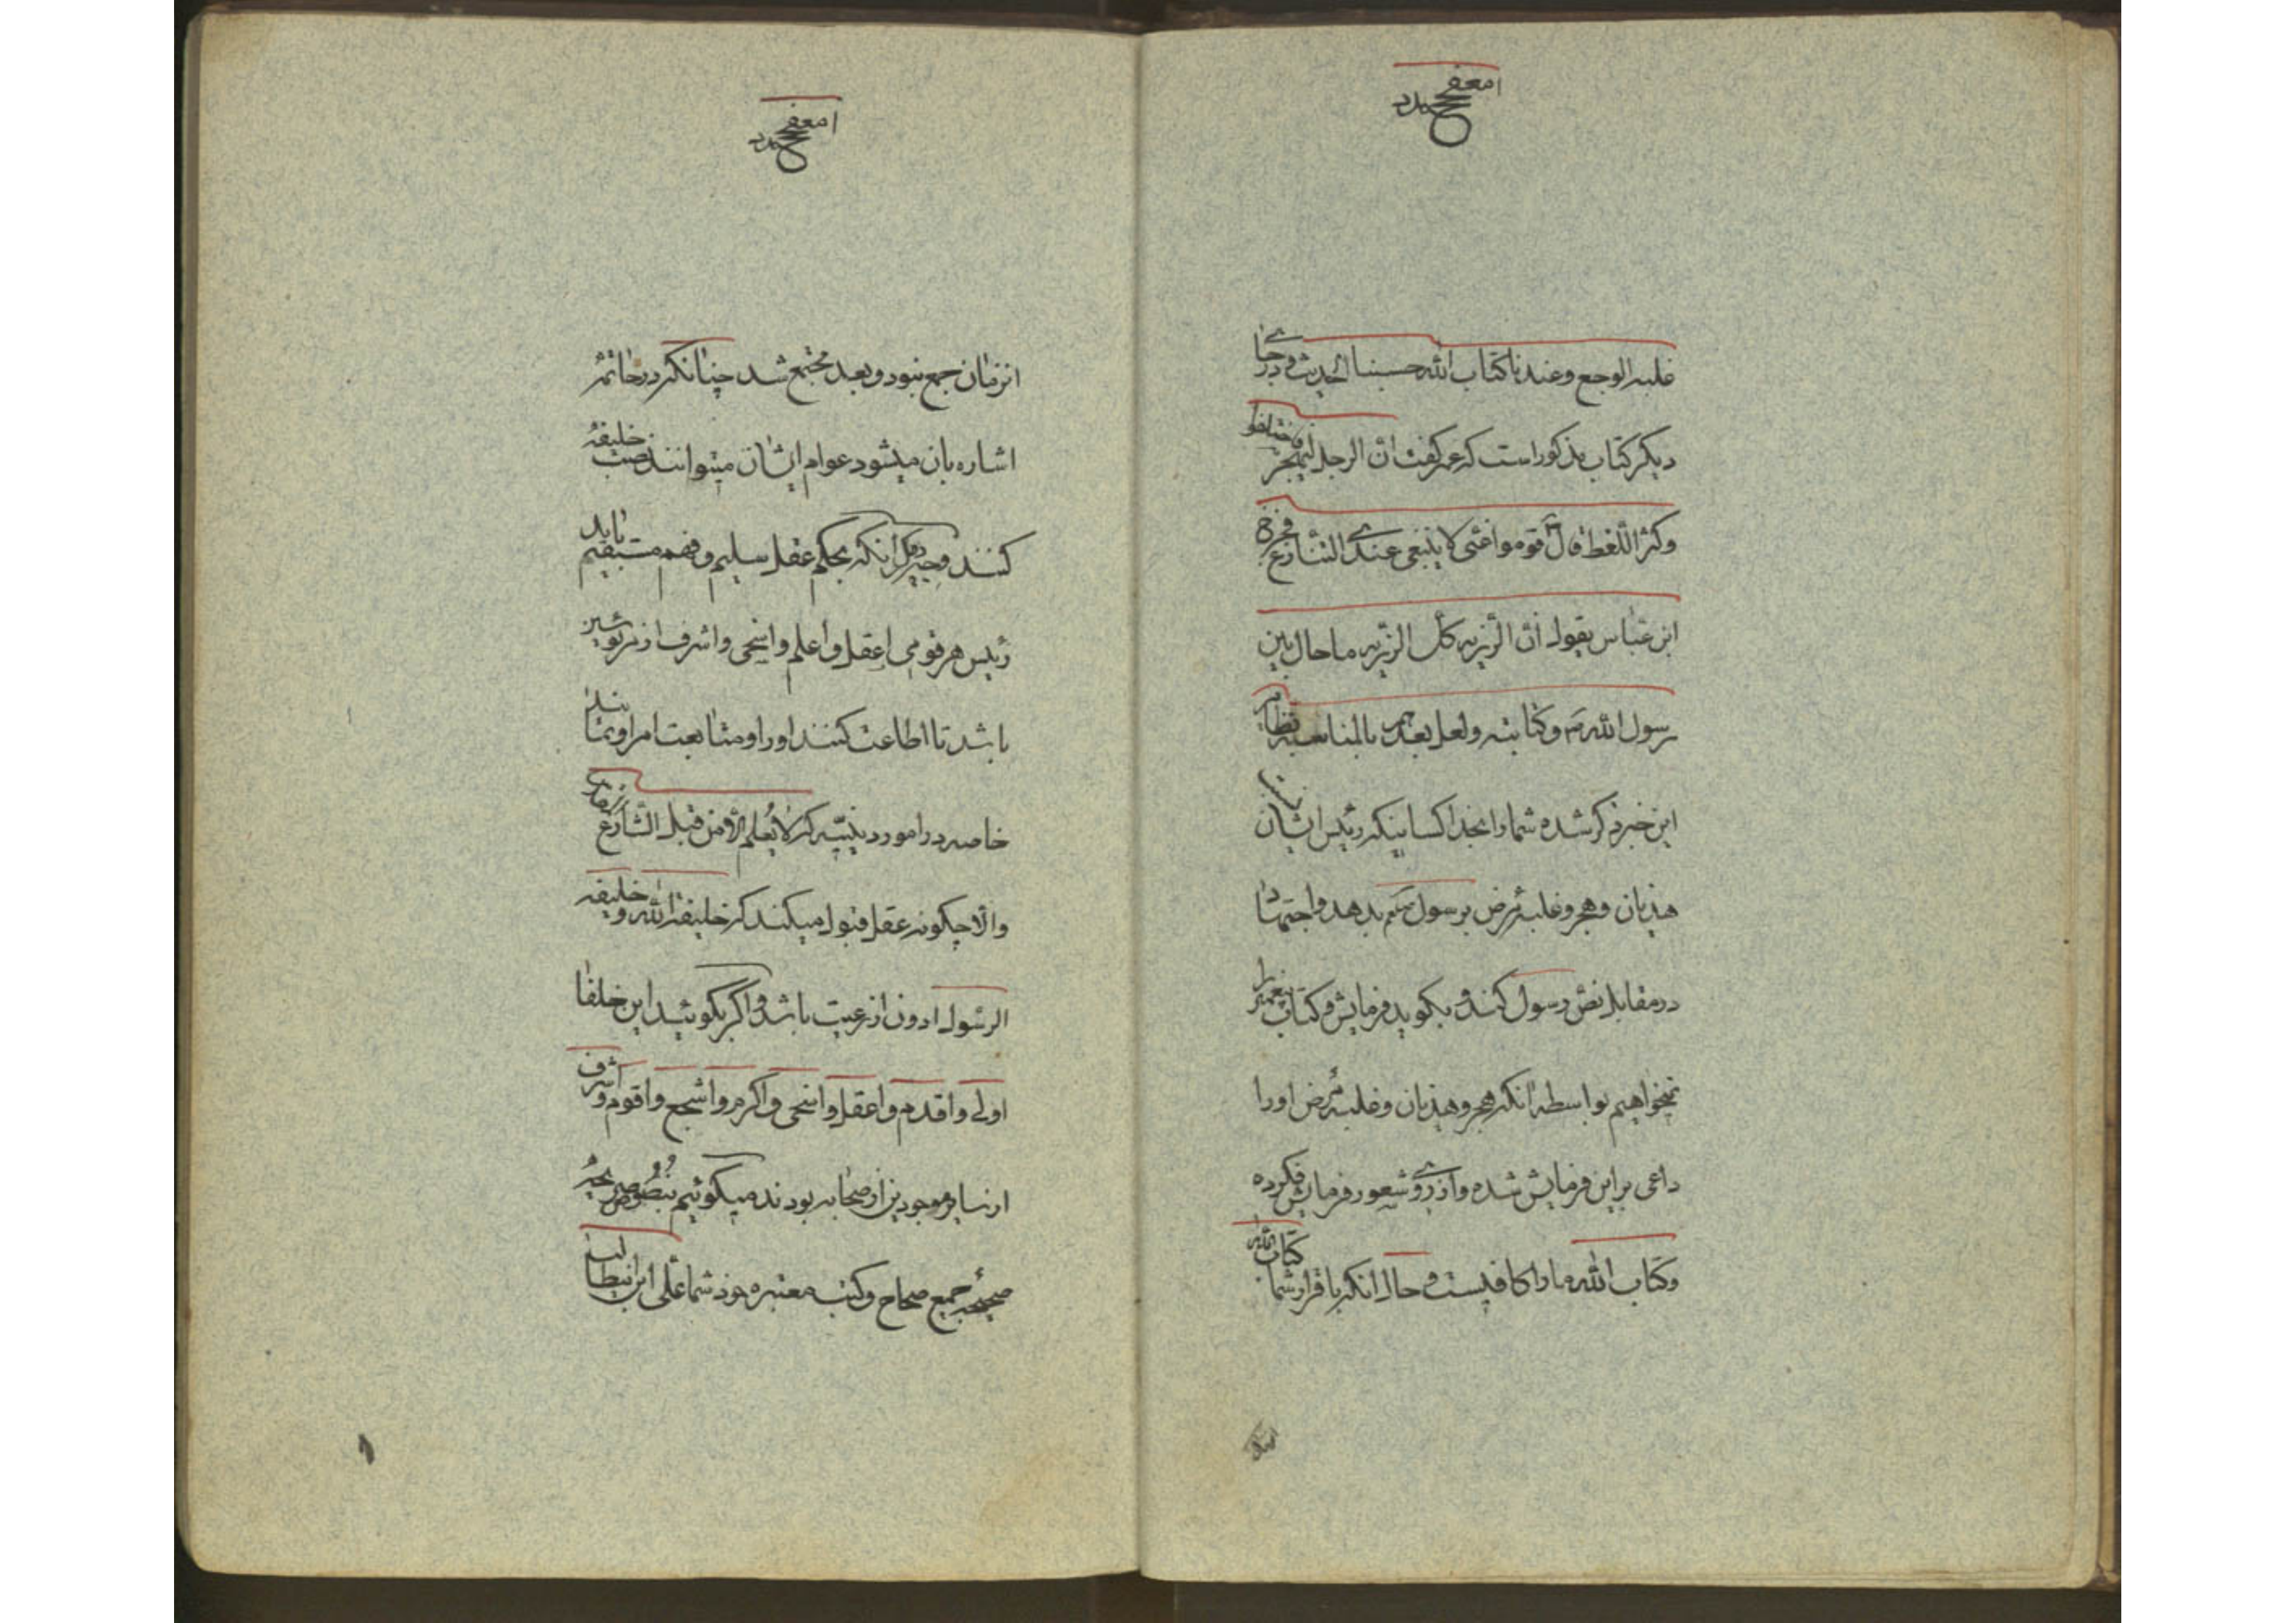 غلبه الوجع وعندنا کتاب الله حسبنا الحدیث و در جای
دیکر کتاب مذکور است که عمر کفت ان الرجل لیهجر فاختلفوا
وکثر اللغط قال قوموا عنی لا ینبغی عندی التنازع فخرج
ابن عباس یقول ان الرزیه کل الرزیه ما حال بین
رسول الله ص وکتابته ولعل بعد بالمناسبه
این خبر ذکر شده شما را بخدا کسانیکه رئیس ایشان نسبت
هذیان و هجر و غلبه مرض برسول صلعم بدهد و اجتهاد
در مقابل نص رسول کند و بکوید فرمایش و کتاب پیغمبر را
نمیخواهیم بواسطه انکه هجر و هذیان و غلبه مرض اورا
داعی بر این فرمایش شده و از روی شعور فرمایش نکرده
وکتاب الله مارا کافیست و حال انکه باقرار شما کتاب الله
انزمان جمع نبود و بعد مجتمع شد چنانکه در خاتمه
اشاره بان میشود عوام ایشان میتوانند نصب خلیفه
کنند انکه بحکم عقل سلیم و فهم مستقیم باید
رئیس هر قومی اعقل و اعلم و اسخی و اشرف از مرئوسین
باشد تا اطاعت کنند اورا و متابعت امر او نمایند
خاصه در امور دینیه که لا یعلم الا من قبل الشارع
والا چکونه عقل قبول میکند که خلیفة الله و خلیفه
الرسول ادون از رعیت باشد و اکر بکوئید این خلفا
اولی و اقدم و اعقل و اسخی و اکرم و اشجع و اقوم و اشرف
از سایر موجودین از صحابه بودند میکوئیم بنصوص
صحیحه جمیع صحاح و کتب معتبره خود شما علی ابن ابیطالب